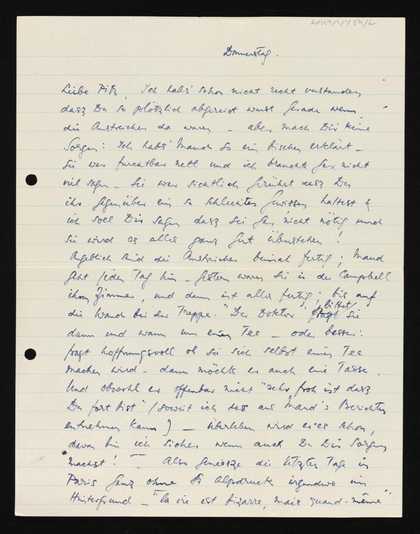 Donnerstag.
Liebe Pitz, Ich hab's schon nicht recht verstanden
dass Du so plötzlich abgereist warst gerade wenn
die Anstreicher da waren – aber mach Dir keine
Sorgen: Ich hab's Maud so ein bischen erklärt –
Sie war furchtbar nett und ich brauchte gar nicht
viel sagen – Sie war sichtlich gerührt dass Du
ihr gegenüber ein so schlechtes Gewissen hattest &
ich soll Dir sagen dass sie gar nicht nötig und
sie wird es alles ganz gut überstehen!
Angeblich sind die Anstreicher beinah fertig; Maud
geht jeden Tag hin – gestern waren sie in der Campbell
ihrem Zimmer, und dann ist alles fertig, bis auf
die Wände bei der Treppe. "Der Doktor" bittet sie
dann und wann um einen Tee – oder besser:
fragt hoffnungsvoll ob sie sich selbst einen Tee
machen wird – dann möchte er auch eine Tasse.
Und obwohl er offenbar nicht "sehr froh ist dass
Du fort bist" (soweit ich das aus Maud's Berichten
entnehmen kann) – überleben wird er es schon,
davon bin ich sicher wenn auch Du Dir Sorgen
machst! – Also geniesse die letzten Tage in
Paris ganz ohne Alpdruck irgendwo im
Hintergrund – "la vie est bizarre, mais quand-même"